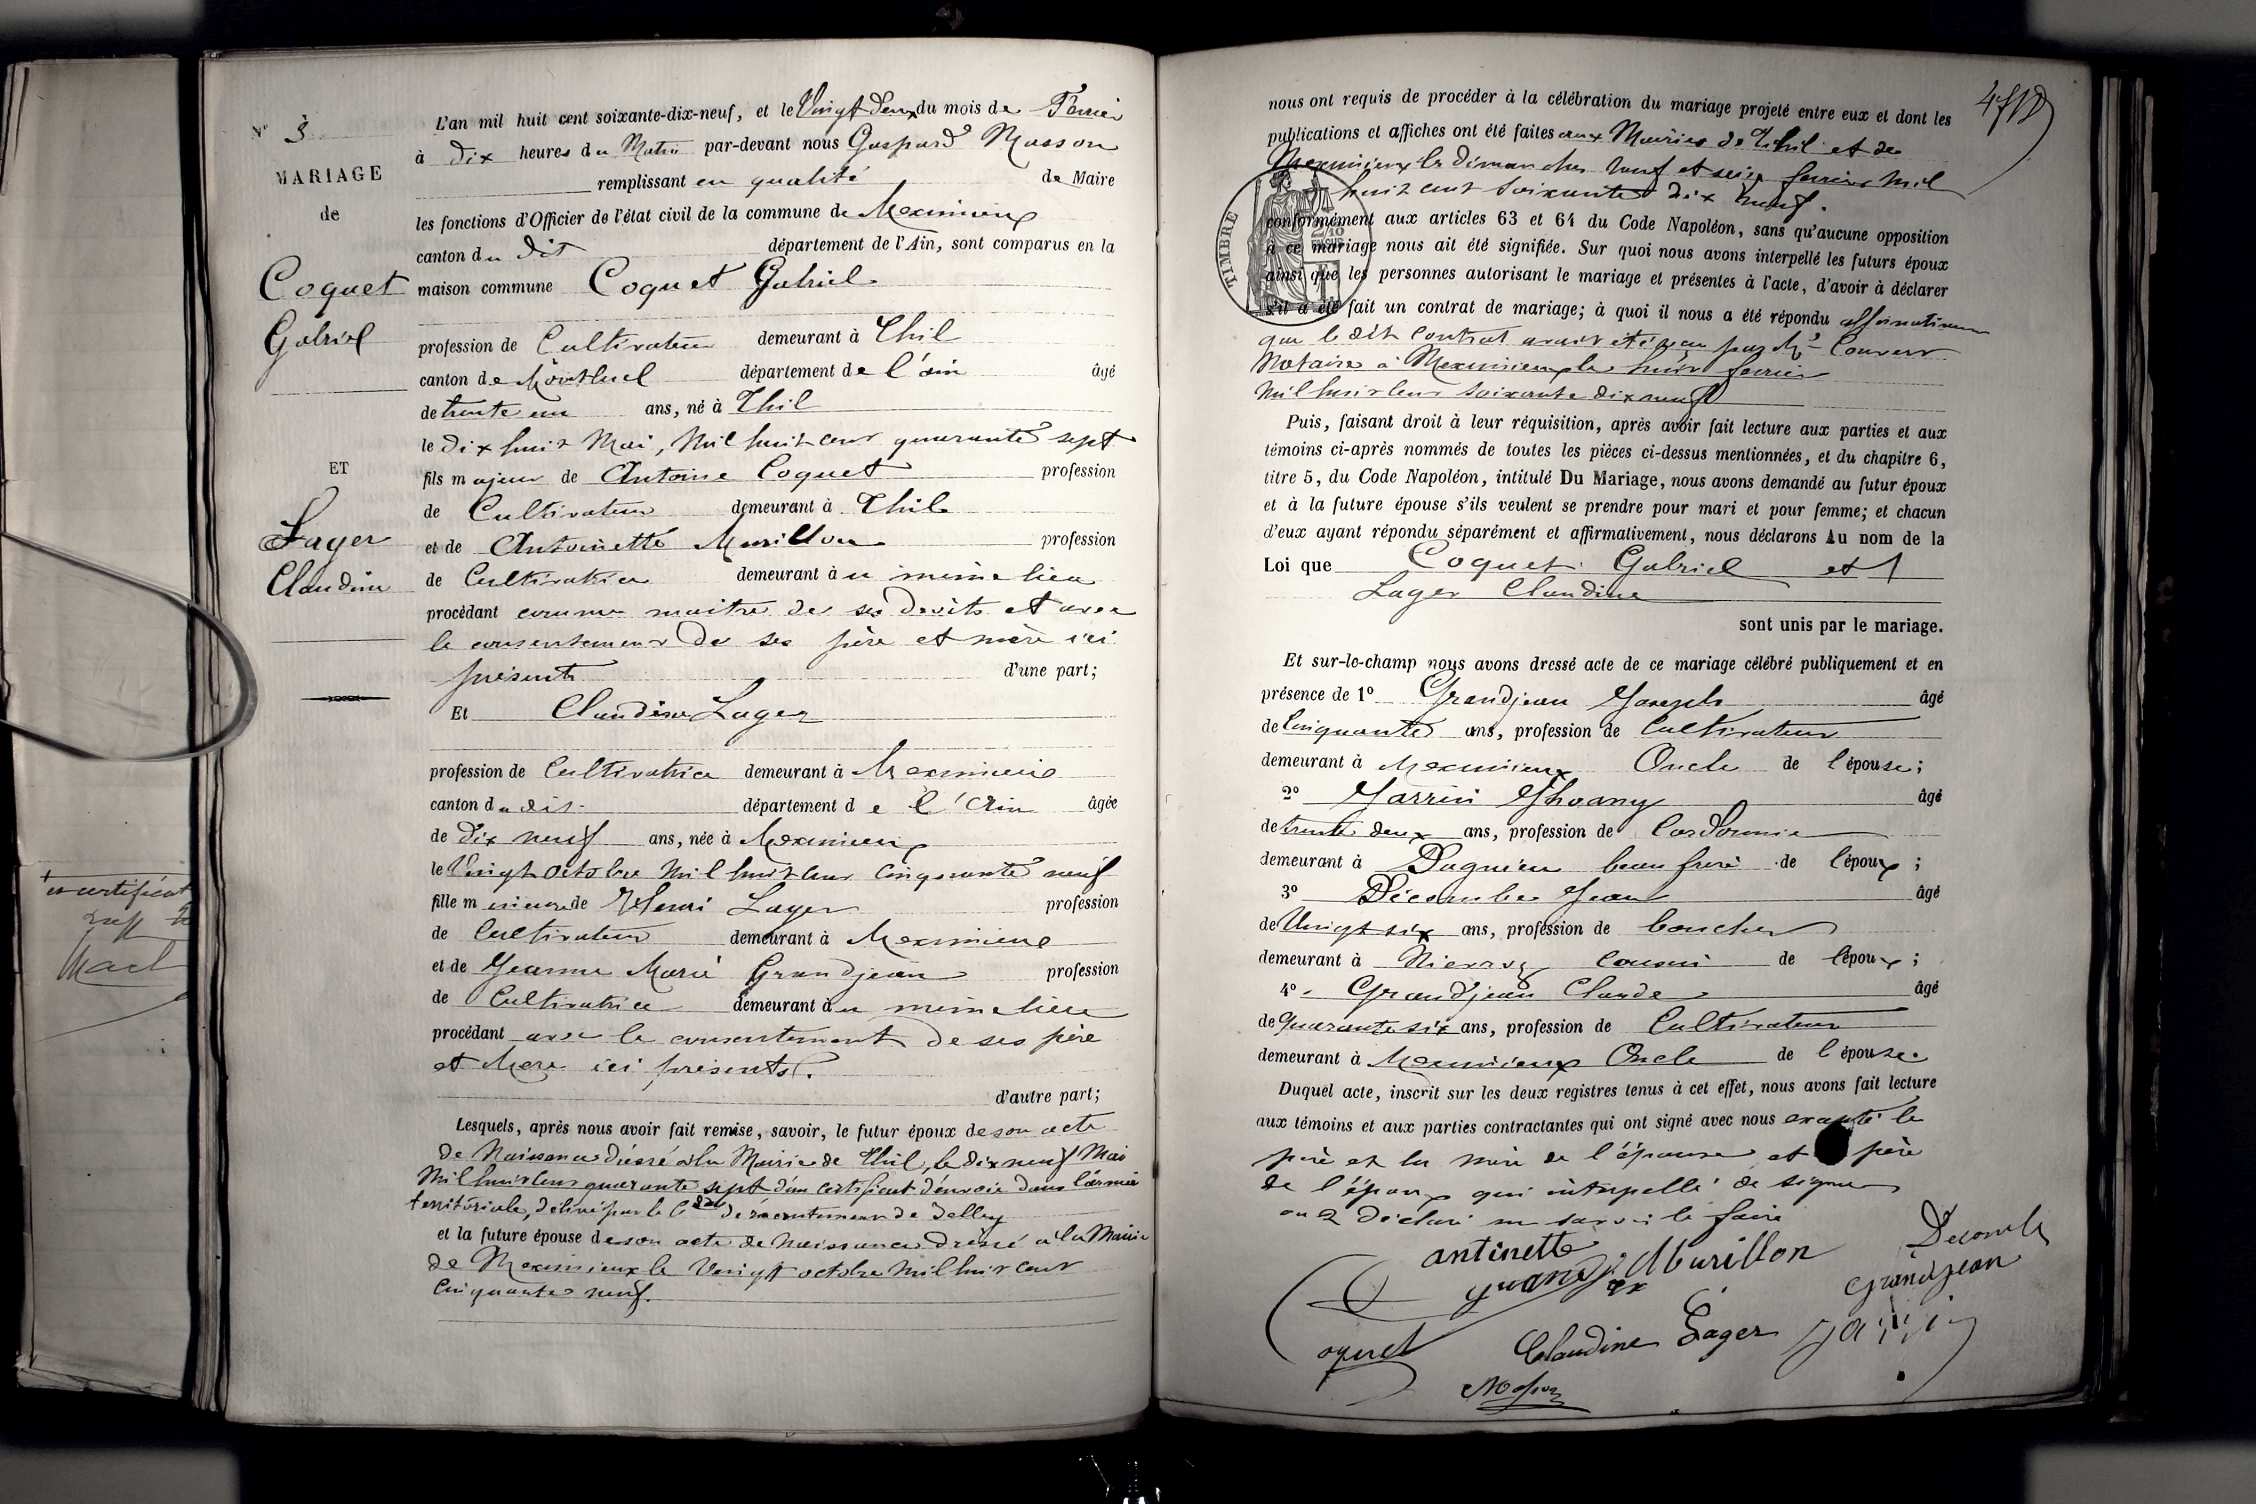 N° 3
MARIAGE
de
Coquet
Gabriel
ET
Lager
Claudine
L'an mil huit cent soixante-dix-neuf, et le Vingt Deux du mois de Fevrier
à Dix heures du Matin par-devant nous Gaspard Masson
remplissant en qualité de Maire
les fonctions d'Officier de l'état civil de la commune de Meximieux
canton du dit département de l'Ain, sont comparus en la
maison commune Coquet Gabriel
profession de Cultivateur demeurant à Thil
canton de Montluel département de l'ain âgé
de trente un ans, né à Thil
le dix huit Mai, Mil huit cent quarante sept
fils majeur de Antoine Coquet profession
de Cultivateur demeurant à Thil
et de Antoinette Murillon profession
de Cultivatrice demeurant au même lieu
procédant comme maitre de ses droits et avec
le consentement de ses père et mère ici
présents d'une part;
Et Claudine Lager
profession de Cultivatrice demeurant à Meximieux
canton du dit département de l'Ain âgée
de Dix neuf ans, née à Meximieux
le Vingt octobre Mil huit cent cinquante neuf
fille mineure de Henri Lager profession
de Cultivateur demeurant à Meximieux
et de Jeanne Marie Grandjean profession
de Cultivatrice demeurant au même lieu
procédant avec le consentement de ses père
et Mère ici présents.
d'autre part;
Lesquels, après nous avoir fait remise, savoir, le futur époux de son acte
de Naissance dressé à la Mairie de Thil, le dix neuf Mai
Mil huit cent quarante sept d'un certificat d'envoie dans l'armée
territoriale, délivré par le de recrutement de Belley
et la future épouse de son acte de Naissance dressé à la Mairie
de Meximieux le Vingt octobre Mil huit cent
Cinquante neuf.
nous ont requis de procéder à la célébration du mariage projeté entre eux et dont les
publications et affiches ont été faites aux Mairies de Thil et de
Meximieux les dimanches neuf et seize fevrier Mil
huit cent soixante dix neuf.
TIMBRE
conformément aux articles 63 et 64 du Code Napoléon, sans qu'aucune opposition
à ce mariage nous ait été signifiée. Sur quoi nous avons interpellé les futurs époux
ainsi que les personnes autorisant le mariage et présentes à l'acte, d'avoir à déclarer
s'il a été fait un contrat de mariage; à quoi il nous a été répondu
que le dit contrat avait été reçu par Me Couvert
Notaire à Meximieux le huit fevrier
Mil huit cent soixante dix neuf
Puis, faisant droit à leur réquisition, après avoir fait lecture aux parties et aux
témoins ci-après nommés de toutes les pièces ci-dessus mentionnées, et du chapitre 6,
titre 5, du Code Napoléon, intitulé Du Mariage, nous avons demandé au futur époux
et à la future épouse s'ils veulent se prendre pour mari et pour femme; et chacun
d'eux ayant répondu séparément et affirmativement, nous déclarons Au nom de la
Loi que Coquet Gabriel et
Lager Claudine
sont unis par le mariage.
Et sur-le-champ nous avons dressé acte de ce mariage célébré publiquement et en
présence de 1° Grandjean Joseph âgé
de Cinquante ans, profession de Cultivateur
demeurant à Meximieux Oncle de l'épouse;
2° Jarrin Jhoany âgé
de trente deux ans, profession de Cordonnier
demeurant à Dagnieu beau frere de l'époux;
3° Décombe Jean âgé
de Vingt six ans, profession de boucher
demeurant à Nievroz Cousin de l'époux;
4° Grandjean Claude âgé
de quarante six ans, profession de Cultivateur
demeurant à Meximieux Oncle de l'épouse.
Duquel acte, inscrit sur les deux registres tenus à cet effet, nous avons fait lecture
aux témoins et aux parties contractantes qui ont signé avec nous excepté le
père et la mère de l'épouse et père
de l'époux qui interpellé de signer
on déclaré ne savoir le faire
antinette Murillon
Decombe
Grandjean
Coquet
Claudine Lager
Jarrin
Masson